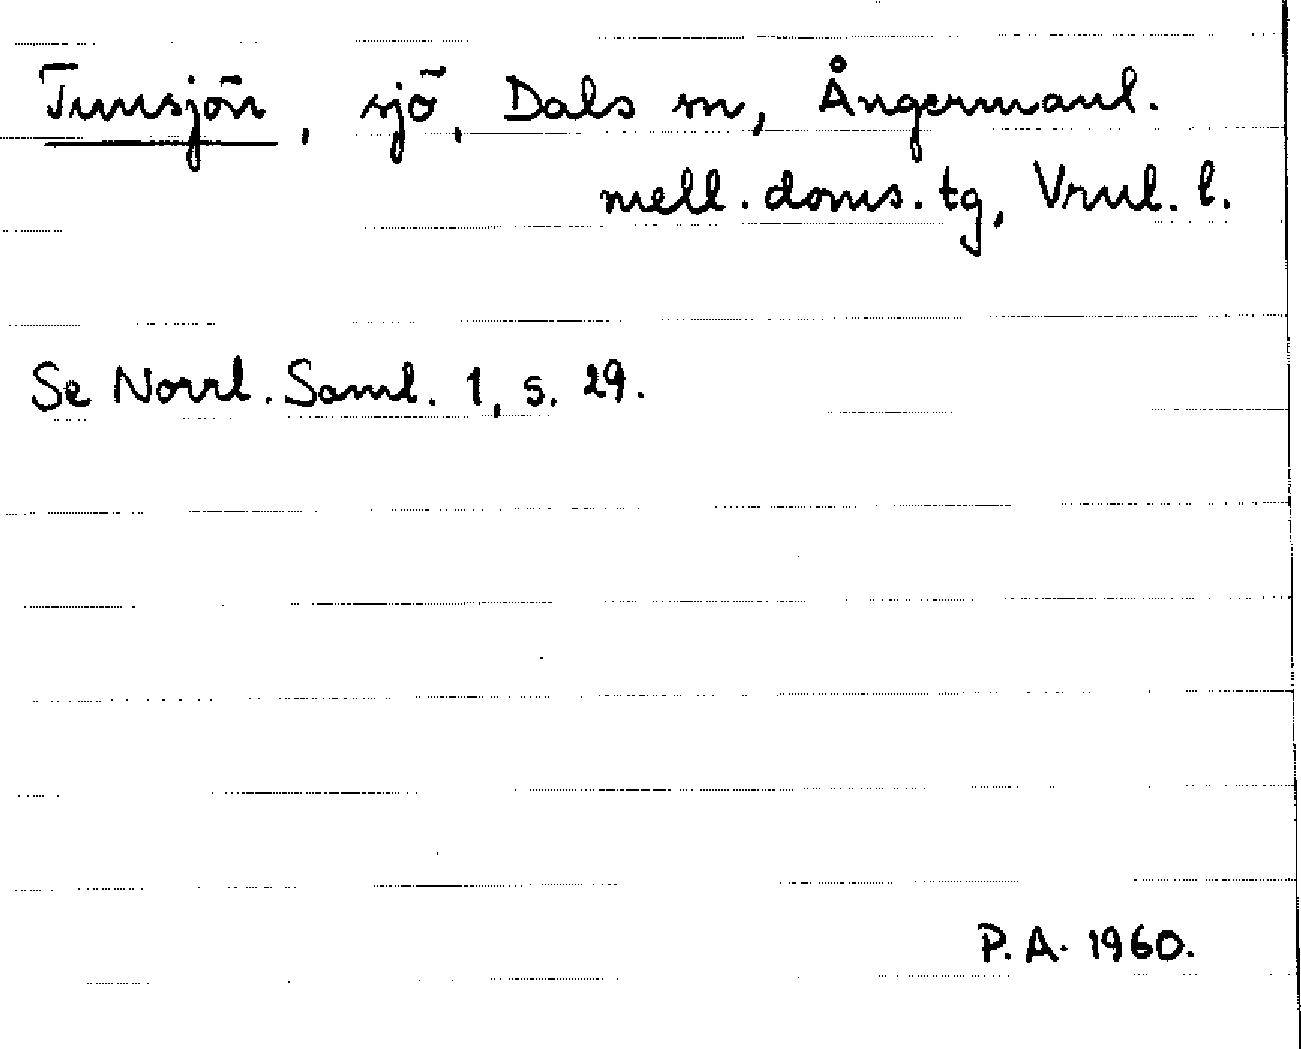 Tunsjön, sjö, Dals sn, Ångermanl.
mell. doms. tg, Vrnl. l.
Se Norrl. Saml. 1, s. 29.
P. A. 1960.